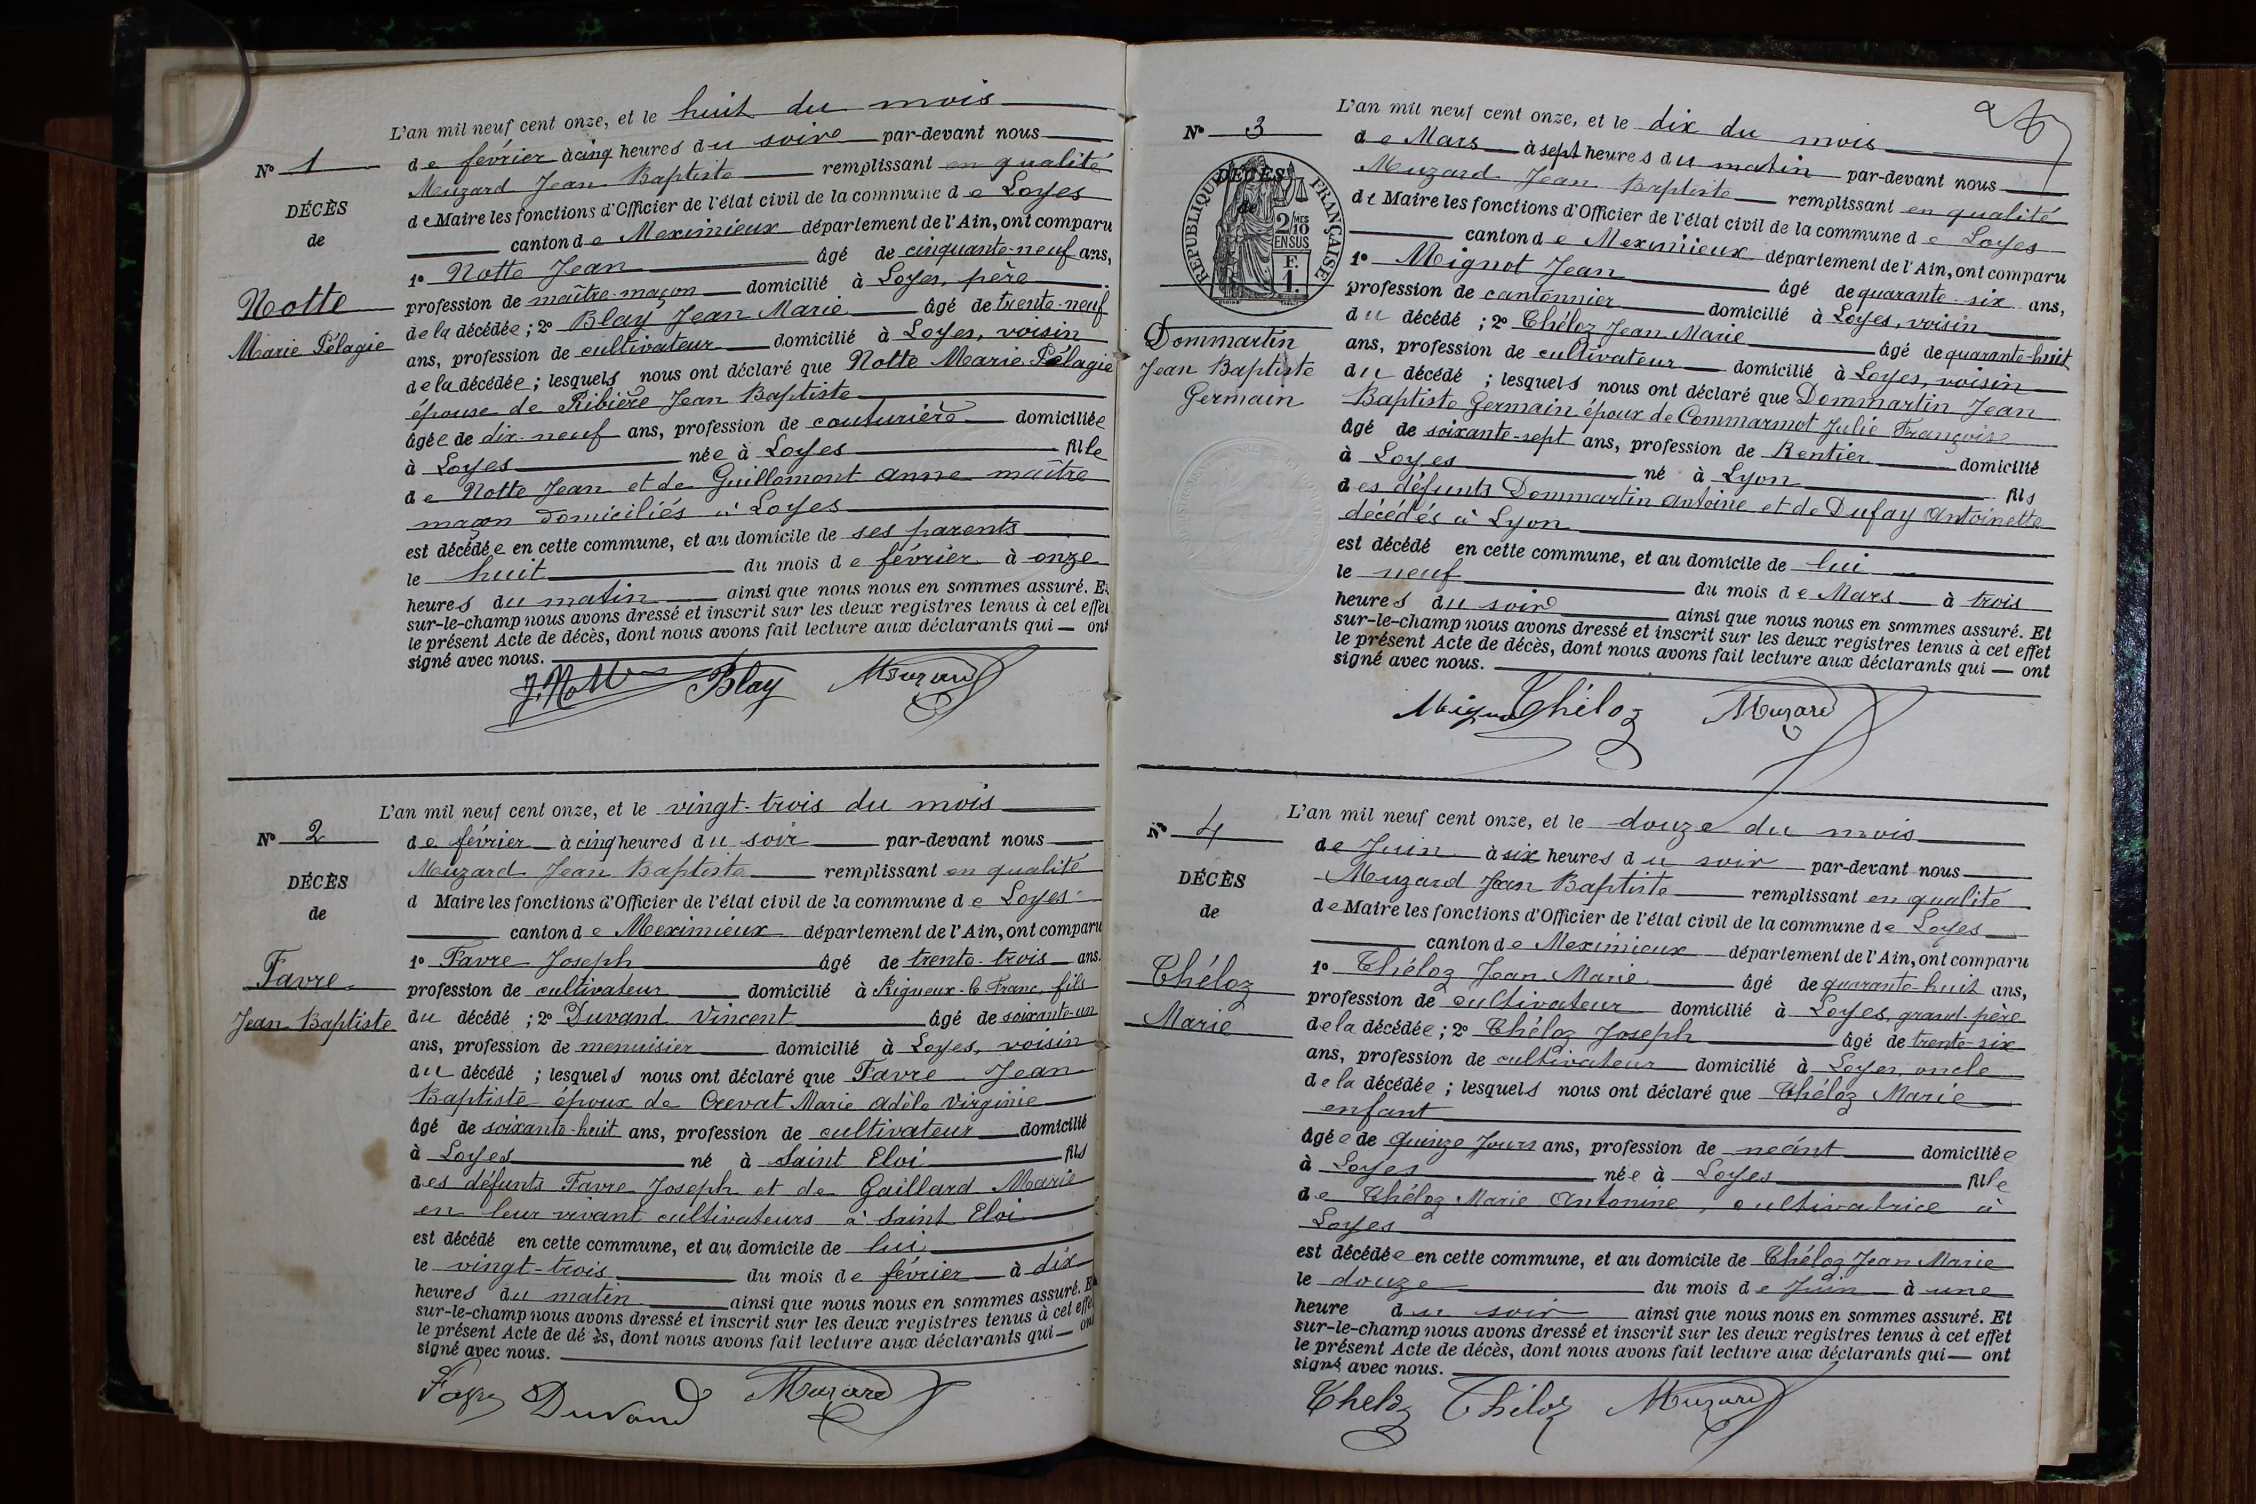 L'an mil neuf cent onze, et le huit du mois
de février à cinq heures du soir par-devant nous
Muzard Jean Baptiste remplissant en qualité
de Maire les fonctions d'Officier de l'état civil de la commune de Loyes
canton de Meximieux département de l'Ain, ont comparu
1° Notte Jean âgé de cinquante-neuf ans,
profession de maître-maçon domicilié à Loyes, père
de la décédée ; 2° Blay Jean Marie âgé de trente-neuf
ans, profession de cultivateur domicilié à Loyes, voisin
de la décédée ; lesquels nous ont déclaré que Notte Marie Pélagie
épouse de Ribière Jean Baptiste
âgée de dix-neuf ans, profession de couturière domiciliée
à Loyes née à Loyes fille
de Notte Jean et de Guillomont Anne maître
maçon domiciliés à Loyes
est décédée en cette commune, et au domicile de ses parents
le huit du mois de février à onze
heures du matin ainsi que nous nous en sommes assuré. Et
sur-le-champ nous avons dressé et inscrit sur les deux registres tenus à cet effet
le présent Acte de décès, dont nous avons fait lecture aux déclarants qui — ont
signé avec nous.
J. Notte Blay Muzard
N° 1
DÉCÈS
de
Notte
Marie Pélagie
L'an mil neuf cent onze, et le vingt-trois du mois
de février à cinq heures du soir par-devant nous
Muzard Jean Baptiste remplissant en qualité
d Maire les fonctions d'Officier de l'état civil de la commune de Loyes
canton de Meximieux département de l'Ain, ont comparu
1° Favre Joseph âgé de trente-trois ans.
profession de cultivateur domicilié à Rigneux-le Franc, fils
du décédé ; 2° Duvand Vincent âgé de soixante-un
ans, profession de menuisier domicilié à Loyes, voisin
du décédé ; lesquels nous ont déclaré que Favre Jean
Baptiste époux de Crevat Marie Adèle Virginie
âgé de soixante-huit ans, profession de cultivateur domicilié
à Loyes né à Saint Eloi fils
des défunts Favre Joseph et de Gaillard Marie
en leur vivant cultivateurs à Saint Eloi
est décédé en cette commune, et au domicile de lui
le vingt-trois du mois de février à dix
heures du matin ainsi que nous nous en sommes assuré. Et
sur-le-champ nous avons dressé et inscrit sur les deux registres tenus à cet effet
le présent Acte de dé ès, dont nous avons fait lecture aux déclarants qui — ont
signé avec nous.
Duvand Muzard
N° 2
DÉCÈS
de
Favre
Jean Baptiste
L'an mil neuf cent onze, et le dix du mois
de Mars à sept heures du matin par-devant nous
Muzard Jean Baptiste remplissant en qualité
de Maire les fonctions d'Officier de l'état civil de la commune de Loyes
canton de Meximieux département de l'Ain, ont comparu
1° Mignot Jean âgé de quarante-six ans,
profession de cantonnier domicilié à Loyes, voisin
du décédé ; 2° Théloz Jean Marie âgé de quarante-huit
ans, profession de cultivateur domicilié à Loyes, voisin
du décédé ; lesquels nous ont déclaré que Dommartin Jean
Baptiste Germain époux de Commarmot Julie Françoise
âgé de soixante-sept ans, profession de Rentier domicilié
à Loyes né à Lyon fils
des défunts Dommartin Antoine et de Dufay Antoinette
décédés à Lyon
est décédé en cette commune, et au domicile de lui
le neuf du mois de Mars à trois
heures du soir ainsi que nous nous en sommes assuré. Et
sur-le-champ nous avons dressé et inscrit sur les deux registres tenus à cet effet
le présent Acte de décès, dont nous avons fait lecture aux déclarants qui — ont
signé avec nous.
Mignot Théloz Muzard
N° 3
DÉCÈS
de
RÉPUBLIQUE FRANÇAISE
2 MES
10
EN SUS
F.
1.
Dommartin
Jean Baptiste
Germain
L'an mil neuf cent onze, et le douze du mois
de Juin à six heures du soir par-devant nous
Muzard Jean Baptiste remplissant en qualité
de Maire les fonctions d'Officier de l'état civil de la commune de Loyes
canton de Meximieux département de l'Ain, ont comparu
1° Théloz Jean Marie âgé de quarante-huit ans,
profession de cultivateur domicilié à Loyes, grand-père
de la décédée ; 2° Théloz Joseph âgé de trente-six
ans, profession de cultivateur domicilié à Loyes, oncle
de la décédée ; lesquels nous ont déclaré que Théloz Marie
enfant
âgée de quinze Jours ans, profession de néant domiciliée
à Loyes née à Loyes fille
de Théloz Marie Antonine, cultivatrice à
Loyes
est décédée en cette commune, et au domicile de Théloz Jean Marie
le douze du mois de Juin à une
heure du soir ainsi que nous nous en sommes assuré. Et
sur-le-champ nous avons dressé et inscrit sur les deux registres tenus à cet effet
le présent Acte de décès, dont nous avons fait lecture aux déclarants qui — ont
signé avec nous.
Theloz Théloz Muzard
N° 4
DÉCÈS
de
Théloz
Marie